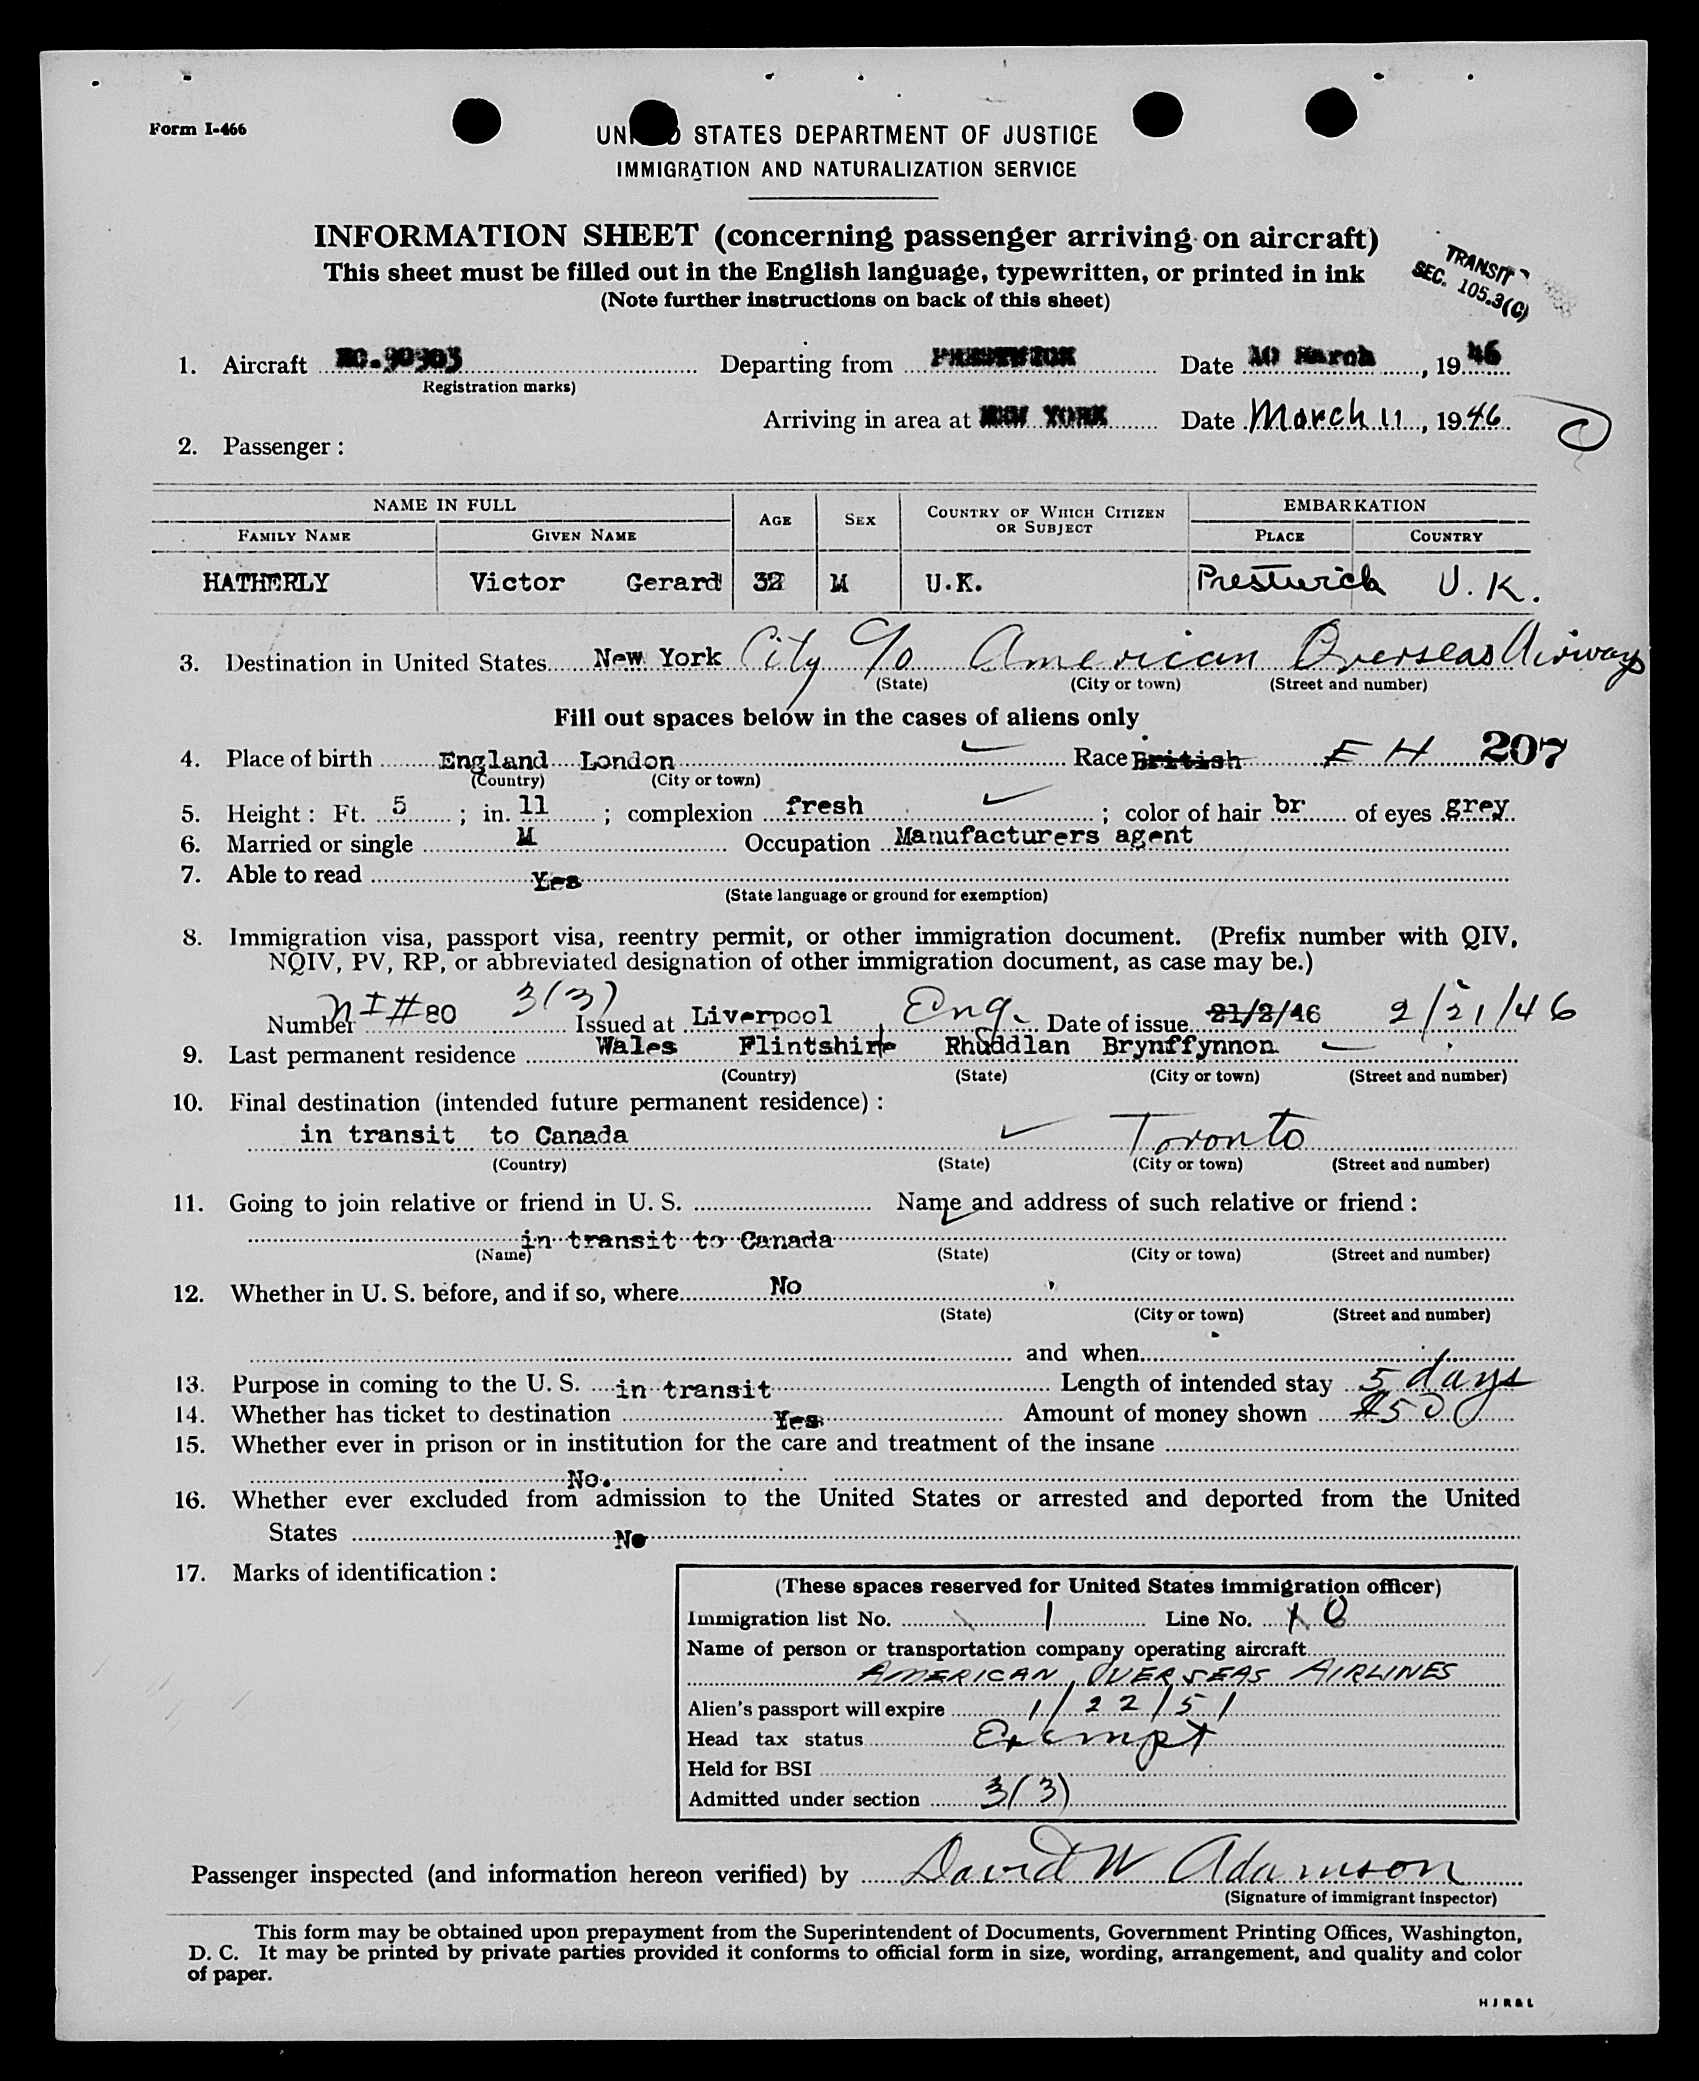 Form I-466
UNITED STATES DEPARTMENT OF JUSTICE
IMMIGRATION AND NATURALIZATION SERVICE
INFORMATION SHEET (concerning passenger arriving on aircraft)
This sheet must be filled out in the English language, typewritten, or printed in ink
(Note further instructions on back of this sheet)
TRANSIT
SEC. 105.3(C)
1. Aircraft NC.90903 Departing from PRESTWICK Date 10 March, 1946
(Registration marks)
Arriving in area at NEW YORK Date March 11, 1946
2. Passenger :
NAME IN FULL AGE SEX COUNTRY OF WHICH CITIZEN OR SUBJECT EMBARKATION
FAMILY NAME GIVEN NAME PLACE COUNTRY
HATHERLY Victor Gerard 32 M U.K. Prestwick U.K.
3. Destination in United States New York City c/o American Overseas Airways
(State) (City or town) (Street and number)
Fill out spaces below in the cases of aliens only
4. Place of birth England London Race British E H 207
(Country) (City or town)
5. Height : Ft. 5 ; in. 11 ; complexion fresh ; color of hair br of eyes grey
6. Married or single M Occupation Manufacturers agent
7. Able to read Yes
(State language or ground for exemption)
8. Immigration visa, passport visa, reentry permit, or other immigration document. (Prefix number with QIV,
NQIV, PV, RP, or abbreviated designation of other immigration document, as case may be.)
Number NI #80 3(3) Issued at Liverpool Eng. Date of issue 21/2/46 2/21/46
9. Last permanent residence Wales Flintshire Rhuddlan Brynffynnon
(Country) (State) (City or town) (Street and number)
10. Final destination (intended future permanent residence) :
in transit to Canada Toronto
(Country) (State) (City or town) (Street and number)
11. Going to join relative or friend in U. S. Name and address of such relative or friend :
in transit to Canada
(Name) (State) (City or town) (Street and number)
12. Whether in U. S. before, and if so, where No
(State) (City or town) (Street and number)
and when
13. Purpose in coming to the U. S. in transit Length of intended stay 5 days
14. Whether has ticket to destination Yes Amount of money shown $50
15. Whether ever in prison or in institution for the care and treatment of the insane
No.
16. Whether ever excluded from admission to the United States or arrested and deported from the United
States No
17. Marks of identification :
(These spaces reserved for United States immigration officer)
Immigration list No. 1 Line No. 8
Name of person or transportation company operating aircraft
AMERICAN OVERSEAS AIRLINES
Alien's passport will expire 1/22/51
Head tax status Exempt
Held for BSI
Admitted under section 3(3)
Passenger inspected (and information hereon verified) by David W Adamson
(Signature of immigrant inspector)
This form may be obtained upon prepayment from the Superintendent of Documents, Government Printing Offices, Washington,
D. C. It may be printed by private parties provided it conforms to official form in size, wording, arrangement, and quality and color
of paper.
H J R & L